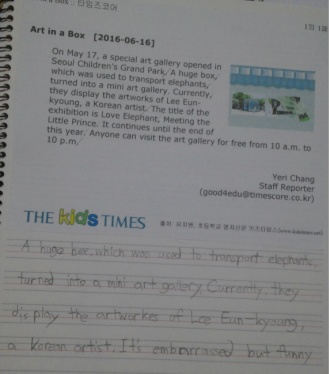 타임즈코어
1의 1页
Art in a Box [2016-06-16]
On May 17, a special art gallery opened in
Seoul Children's Grand Park. A huge box,
which was used to transport elephants,
turned into a mini art gallery. Currently,
they display the artworks of Lee Eun-
kyoung, a Korean artist. The title of the
exhibition is Love Elephant, Meeting the
Little Prince. It continues until the end of
this year. Anyone can visit the art gallery for free from 10 a.m. to
10 p.m.
Yeri Chang
Staff Reporter
(good4edu@timescore.co.kr)
THE kids TIMES
A huge box, which was used to transport elephants,
turned into a mini art gallery. Currently, they
display the artworkes of Lee Eun-kyoung,
a Korean artist. It's embarrassed but funny